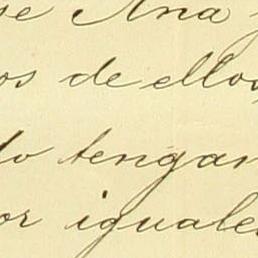 se Ana y
os de ellos,
do tengan
or iguales